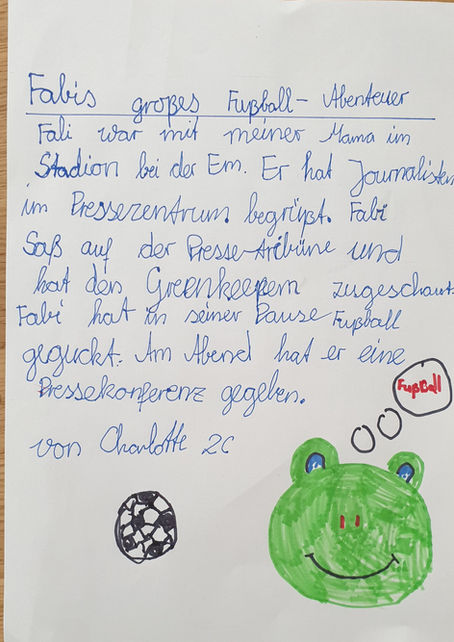 Fabis großes Fußball - Abenteuer
Fabi war mit meiner Mama im
Stadion bei der Em. Er hat Journalisten
im Pressezentrum begrüßt. Fabi
Saß auf der Presse-Tribüne und
hat den Greenkeepern zugeschaut.
Fabi hat in seiner Pause Fußball
geguckt. Am Abend hat er eine
Pressekonferenz gegeben.
von Charlotte 2c
Fußball